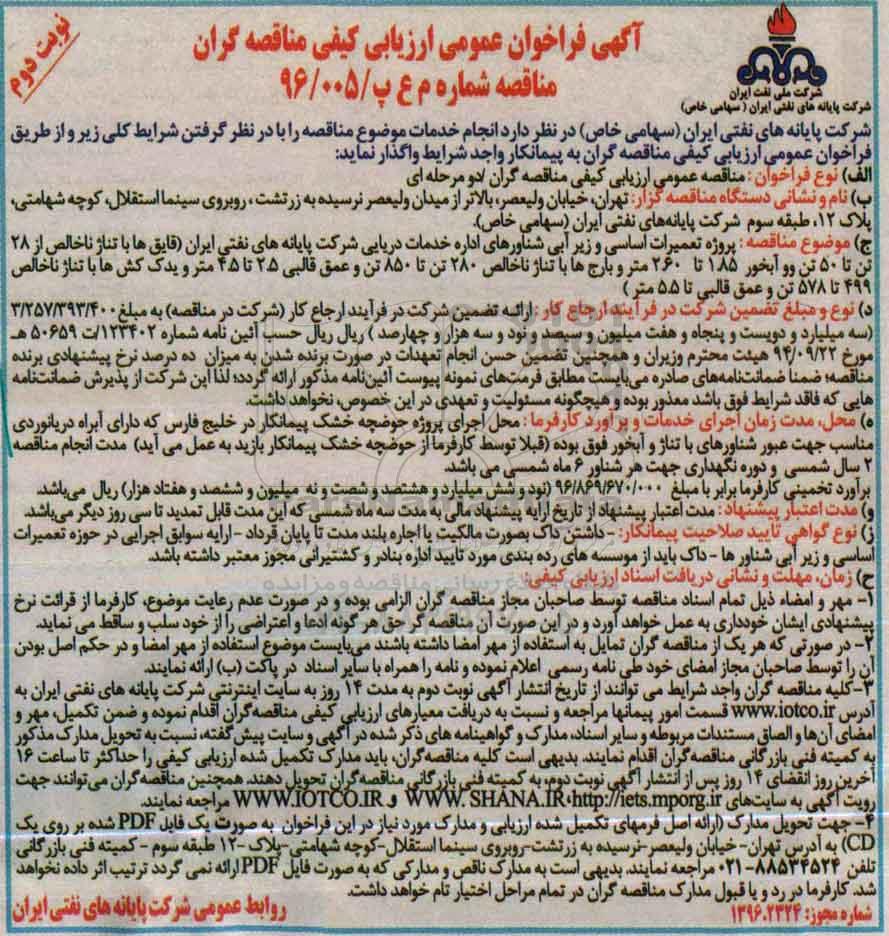 نوبت دوم
آگهی فراخوان عمومی ارزیابی کیفی مناقصه گران
مناقصه شماره م ع پ/۹۶/۰۰۵
شرکت ملی نفت ایران
شرکت پایانه های نفتی ایران (سهامی خاص)
شرکت پایانه های نفتی ایران (سهامی خاص) در نظر دارد انجام خدمات موضوع مناقصه را با در نظر گرفتن شرایط کلی زیر و از طریق
فراخوان عمومی ارزیابی کیفی مناقصه گران به پیمانکار واجد شرایط واگذار نماید:
الف) نوع فراخوان : مناقصه عمومی ارزیابی کیفی مناقصه گران /دو مرحله ای
ب) نام و نشانی دستگاه مناقصه گزار: تهران، خیابان ولیعصر، بالاتر از میدان ولیعصر نرسیده به زرتشت ، روبروی سینما استقلال، کوچه شهامتی،
پلاک ۱۲، طبقه سوم شرکت پایانه‌های نفتی ایران (سهامی خاص).
ج) موضوع مناقصه : پروژه تعمیرات اساسی و زیر آبی شناورهای اداره خدمات دریایی شرکت پایانه های نفتی ایران (قایق ها با تناژ ناخالص از ۲۸
تن تا ۵۰ تن وو آبخور ۱.۸۵ تا ۲.۶۰ متر و بارج ها با تناژ ناخالص ۲۸۰ تن تا ۸۵۰ تن و عمق قالبی ۲.۵ تا ۴.۵ متر و یدک کش ها با تناژ ناخالص
۴۹۹ تا ۵۷۸ تن و عمق قالبی تا ۵.۵ متر )
د) نوع و مبلغ تضمین شرکت در فرآیند ارجاع کار : ارائه تضمین شرکت در فرآیند ارجاع کار (شرکت در مناقصه) به مبلغ ۳/۲۵۷/۳۹۳/۴۰۰
(سه میلیارد و دویست و پنجاه و هفت میلیون و سیصد و نود و سه هزار و چهارصد ) ریال ریال حسب آئین نامه شماره ۱۲۳۴۰۲/ت ۵۰۶۵۹ هـ
مورخ ۹۴/۰۹/۲۲ هیئت محترم وزیران و همچنین تضمین حسن انجام تعهدات در صورت برنده شدن به میزان ده درصد نرخ پیشنهادی برنده
مناقصه؛ ضمنا ضمانت‌نامه‌های صادره می‌بایست مطابق فرمت‌های نمونه پیوست آئین‌نامه مذکور ارائه گردد؛ لذا این شرکت از پذیرش ضمانت‌نامه
هایی که فاقد شرایط فوق باشد معذور بوده و هیچگونه مسئولیت و تعهدی در این خصوص، نخواهد داشت.
ه) محل، مدت زمان اجرای خدمات و برآورد کارفرما : محل اجرای پروژه حوضچه خشک پیمانکار در خلیج فارس که دارای آبراه دریانوردی
مناسب جهت عبور شناورهای با تناژ و آبخور فوق بوده (قبلا توسط کارفرما از حوضچه خشک پیمانکار بازید به عمل می آید) مدت انجام مناقصه
۲ سال شمسی و دوره نگهداری جهت هر شناور ۶ ماه شمسی می باشد.
برآورد تخمینی کارفرما برابر با مبلغ ۹۶/۸۶۹/۶۷۰/۰۰۰ (نود و شش میلیارد و هشتصد و شصت و نه میلیون و ششصد و هفتاد هزار) ریال می‌باشد.
و) مدت اعتبار پیشنهاد : مدت اعتبار پیشنهاد از تاریخ ارایه پیشنهاد مالی به مدت سه ماه شمسی که این مدت قابل تمدید تا سی روز دیگر می‌باشد.
ز) نوع گواهی تایید صلاحیت پیمانکار: -داشتن داک بصورت مالکیت یا اجاره بلند مدت تا پایان قرداد - ارایه سوابق اجرایی در حوزه تعمیرات
اساسی و زیر آبی شناور ها - داک باید از موسسه های رده بندی مورد تایید اداره بنادر و کشتیرانی مجوز معتبر داشته باشد.
ح) زمان، مهلت و نشانی دریافت اسناد ارزیابی کیفی:
۱- مهر و امضاء ذیل تمام اسناد مناقصه توسط صاحبان مجاز مناقصه گران الزامی بوده و در صورت عدم رعایت موضوع، کارفرما از قرائت نرخ
پیشنهادی ایشان خودداری به عمل خواهد آورد و در این صورت آن مناقصه گر حق هر گونه ادعا و اعتراضی را از خود سلب و ساقط می نماید.
۲- در صورتی که هر یک از مناقصه گران تمایل به استفاده از مهر امضا داشته باشند می‌بایست موضوع استفاده از مهر امضا و در حکم اصل بودن
آن را توسط صاحبان مجاز امضای خود طی نامه رسمی اعلام نموده و نامه را همراه با سایر اسناد در پاکت (ب) ارائه نمایند.
۳-کلیه مناقصه گران واجد شرایط می توانند از تاریخ انتشار آگهی نوبت دوم به مدت ۱۴ روز به سایت اینترنتی شرکت پایانه های نفتی ایران به
آدرس www.iotco.ir قسمت امور پیمانها مراجعه و نسبت به دریافت معیارهای ارزیابی کیفی مناقصه‌گران اقدام نموده و ضمن تکمیل، مهر و
امضای آن‌ها و الصاق مستندات مربوطه و سایر اسناد، مدارک و گواهینامه های ذکر شده در آگهی و سایت پیش‌گفته، نسبت به تحویل مدارک مذکور
به کمیته فنی بازرگانی مناقصه‌گران اقدام نمایند. بدیهی است کلیه مناقصه‌گران، باید مدارک تکمیل شده ارزیابی کیفی را حداکثر تا ساعت ۱۶
آخرین روز انقضای ۱۴ روز پس از انتشار آگهی نوبت دوم، به کمیته فنی بازرگانی مناقصه‌گران تحویل دهند. همچنین مناقصه‌گران می‌توانند جهت
رویت آگهی به سایت‌های http://iets.mporg.ir، WWW. SHANA.IR و WWW.IOTCO.IR مراجعه نمایند.
۴- جهت تحویل مدارک (ارائه اصل فرمهای تکمیل شده ارزیابی و مدارک مورد نیاز در این فراخوان به صورت یک فایل PDF شده بر روی یک
CD) به آدرس تهران- خیابان ولیعصر-نرسیده به زرتشت-روبروی سینما استقلال-کوچه شهامتی-پلاک ۱۲- طبقه سوم - کمیته فنی بازرگانی
تلفن ۸۸۵۳۴۵۲۴-۰۲۱ مراجعه نمایند. بدیهی است به مدارک ناقص و مدارکی که به صورت فایل PDF ارائه نمی گردد ترتیب اثر داده نخواهد
شد. کارفرما در رد و یا قبول مدارک مناقصه گران در تمام مراحل اختیار تام خواهد داشت.
شماره مجوز: ۱۳۹۶.۲۳۲۴
روابط عمومی شرکت پایانه های نفتی ایران